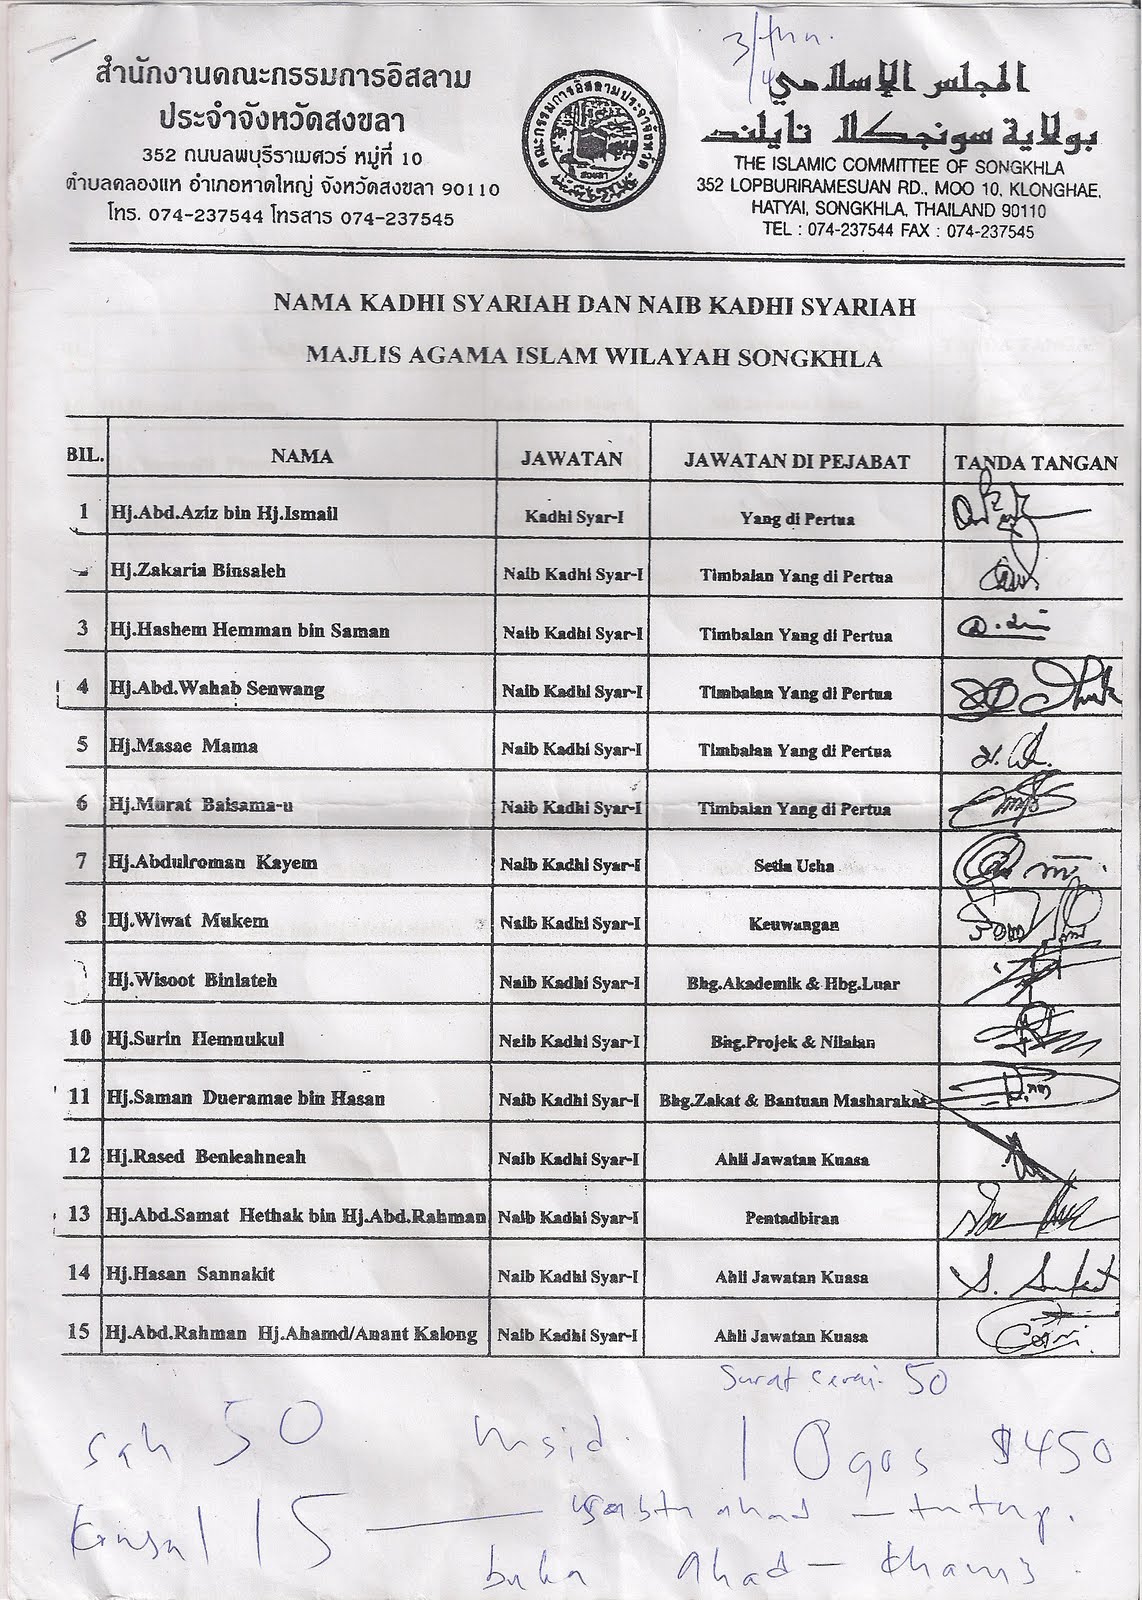 สำนักงานคณะกรรมการอิสลาม
ประจำจังหวัดสงขลา
352 ถนนลพบุรีราเมศวร์ หมู่ที่ 10
ตำบลคลองแห อำเภอหาดใหญ่ จังหวัดสงขลา 90110
โทร. 074-237544 โทรสาร 074-237545
คณะกรรมการอิสลามประจำจังหวัด
สงขลา
المجلس الإسلامي
بولاية سونجكلا تايلند
THE ISLAMIC COMMITTEE OF SONGKHLA
352 LOPBURIRAMESUAN RD., MOO 10, KLONGHAE,
HATYAI, SONGKHLA, THAILAND 90110
TEL : 074-237544 FAX : 074-237545
NAMA KADHI SYARIAH DAN NAIB KADHI SYARIAH
MAJLIS AGAMA ISLAM WILAYAH SONGKHLA
BIL. NAMA JAWATAN JAWATAN DI PEJABAT TANDA TANGAN
1 Hj.Abd.Aziz bin Hj.Ismail Kadhi Syar-I Yang di Pertua
Hj.Zakaria Binsaleh Naib Kadhi Syar-I Timbalan Yang di Pertua
3 Hj.Hashem Hemman bin Saman Naib Kadhi Syar-I Timbalan Yang di Pertua
4 Hj.Abd.Wahab Senwang Naib Kadhi Syar-I Timbalan Yang di Pertua
5 Hj.Masae Mama Naib Kadhi Syar-I Timbalan Yang di Pertua
6 Hj.Murat Baisama-u Naib Kadhi Syar-I Timbalan Yang di Pertua
7 Hj.Abdulroman Kayem Naib Kadhi Syar-I Setia Usha
8 Hj.Wiwat Mukem Naib Kadhi Syar-I Keuwangan
Hj.Wisoot Binlateh Naib Kadhi Syar-I Bhg.Akademik & Hbg.Luar
10 Hj.Surin Hemnukul Naib Kadhi Syar-I Bhg.Projek & Nilaian
11 Hj.Saman Dueramae bin Hasan Naib Kadhi Syar-I Bhg.Zakat & Bantuan Masharakat
12 Hj.Rased Benleahneah Naib Kadhi Syar-I Ahli Jawatan Kuasa
13 Hj.Abd.Samat Hethak bin Hj.Abd.Rahman Naib Kadhi Syar-I Pentadbiran
14 Hj.Hasan Sannakit Naib Kadhi Syar-I Ahli Jawatan Kuasa
15 Hj.Abd.Rahman Hj.Ahamd/Anant Kalong Naib Kadhi Syar-I Ahli Jawatan Kuasa
Surat cerai 50
sah 50 1 Ogos $450
15 ahad - tutup.
buka ahad - khamis.